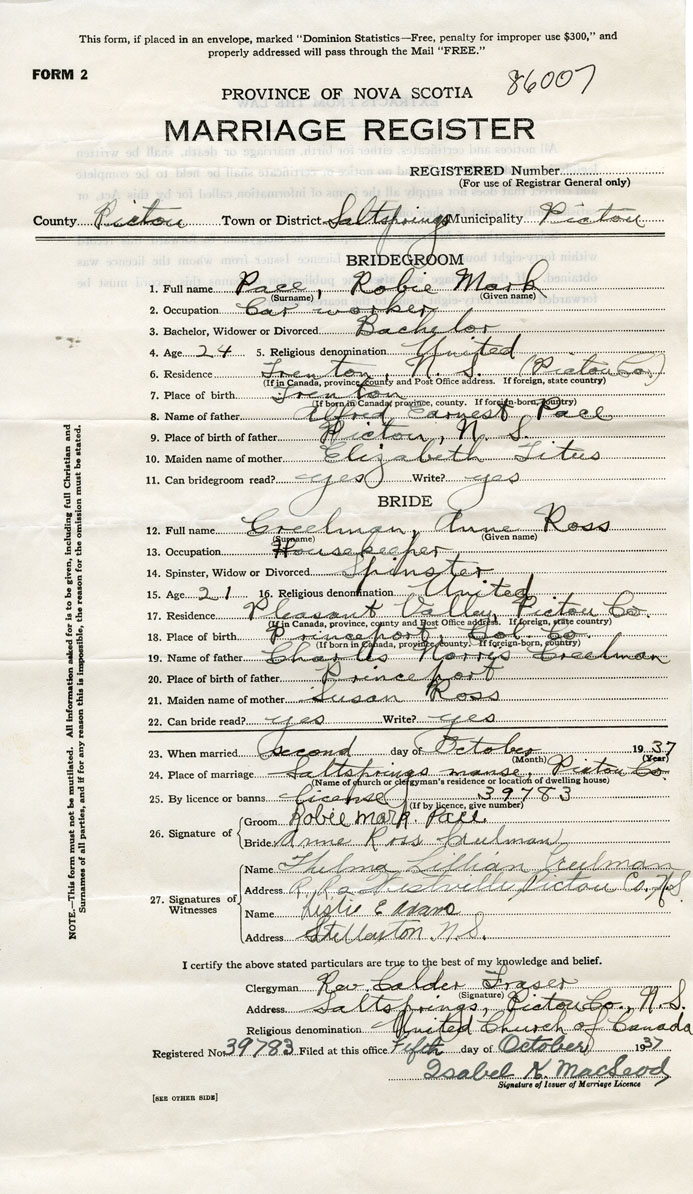 This form, if placed in an envelope, marked "Dominion Statistics—Free, penalty for improper use $300," and
properly addressed will pass through the Mail "FREE."
FORM 2
86007
PROVINCE OF NOVA SCOTIA
MARRIAGE REGISTER
REGISTERED Number
(For use of Registrar General only)
County Pictou Town or District Saltsprings Municipality Pictou
BRIDEGROOM
1. Full name Pace, Robie Mark
(Surname) (Given name)
2. Occupation Car worker
3. Bachelor, Widower or Divorced Bachelor
4. Age 24 5. Religious denomination United
6. Residence Trenton, N. S. (Pictou Co.)
(If in Canada, province, county and Post Office address. If foreign, state country)
7. Place of birth Trenton
(If born in Canada, province, county. If foreign-born, country)
8. Name of father Alfred Earnest Pace
9. Place of birth of father Pictou, N. S.
10. Maiden name of mother Elizabeth Titus
11. Can bridegroom read? yes Write? yes
BRIDE
12. Full name Creelman, Anne Ross
(Surname) (Given name)
13. Occupation Housekeeper
14. Spinster, Widow or Divorced Spinster
15. Age 21 16. Religious denomination United
17. Residence Pleasant Valley, Pictou Co.
(If in Canada, province, county and Post Office address. If foreign, state country)
18. Place of birth Princeport, Col. Co.
(If born in Canada, province, county. If foreign-born, country)
19. Name of father Charles Norris Creelman
20. Place of birth of father Princeport
21. Maiden name of mother Susan Ross
22. Can bride read? yes Write? yes
23. When married second day of October 1937
(Month) (Year)
24. Place of marriage Saltsprings manse, Pictou Co.
(Name of church or clergyman's residence or location of dwelling house)
25. By licence or banns License 39783
(If by licence, give number)
26. Signature of
Groom Robie Mark Pace
Bride Anne Ross Creelman
27. Signatures of Witnesses
Name Thelma Lillian Creelman
Address R.R.2 Westville Pictou Co. N.S.
Name Leslie E Adams
Address Stellarton N.S.
I certify the above stated particulars are true to the best of my knowledge and belief.
Clergyman Rev. Calder Fraser
(Signature)
Address Saltsprings, Pictou Co., N. S.
Religious denomination United Church of Canada
Registered No. 39783 Filed at this office Fifth day of October 1937
Isabel K. MacLeod
Signature of Issuer of Marriage Licence
[SEE OTHER SIDE]
NOTE.—This form must not be mutilated. All information asked for is to be given, including full Christian and
Surnames of all parties, and if for any reason this is impossible, the reason for the omission must be stated.